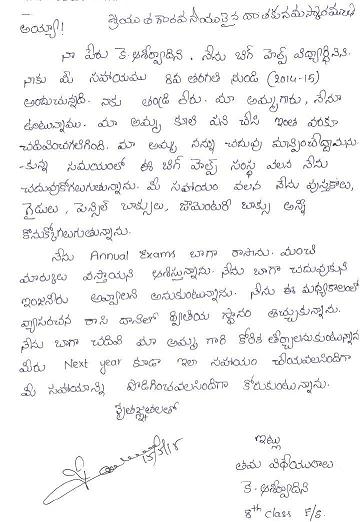 శ్రీయుత గౌరవనీయులైన దాతకు నమస్కారములు
అయ్యా!
నా పేరు కె. అశీర్వాదిని. నేను బిగ్ హెల్ప్ విద్యార్థినిని.
నాకు మీ సహాయము 8వ తరగతి నుండి (2014-15)
అందుచున్నది. నాకు తండ్రి లేరు. మా అమ్మగారు, నేనూ
ఉంటున్నాము. మా అమ్మ కూలి పని చేసి ఇంత వరకూ
చదివించగలిగింది. మా అమ్మ నన్ను చదువు మాన్పించేద్దామను
-కున్న సమయంలో ఈ బిగ్ హెల్ప్ సంస్థ వలన నేను
చదువుకోగలుగుతున్నాను. మీ సహాయం వలన నేను పుస్తకాలు,
గైడులు, పెన్సిల్ బాక్సులు, జామెంటరీ బాక్సు అన్నీ
కొనుక్కోగలుగుతున్నాను.
నేను Annual Exams బాగా రాసాను. మంచి
మార్కులు వస్తాయని ఆశిస్తున్నాను. నేను బాగా చదువుకుని
ఇంజనీరు అవ్వాలని అనుకుంటున్నాను. నేను ఈ మధ్యకాలంలో
వ్యాసరచన రాసి దానిలో ద్వితీయ స్థానం తెచ్చుకున్నాను.
నేను బాగా చదివి మా అమ్మ గారి కోరిక తీర్చాలనుకుంటున్నాను
మీరు Next year కూడా ఇలా సహాయం చేయవలసిందిగా
మీ సహాయాన్ని పొడిగించవలసిందిగా కోరుకుంటున్నాను.
కృతజ్ఞతలతో
ఇట్లు
15/3/15
తమ విధేయురాలు
కె. అశీర్వాదిని
8th class E/S.